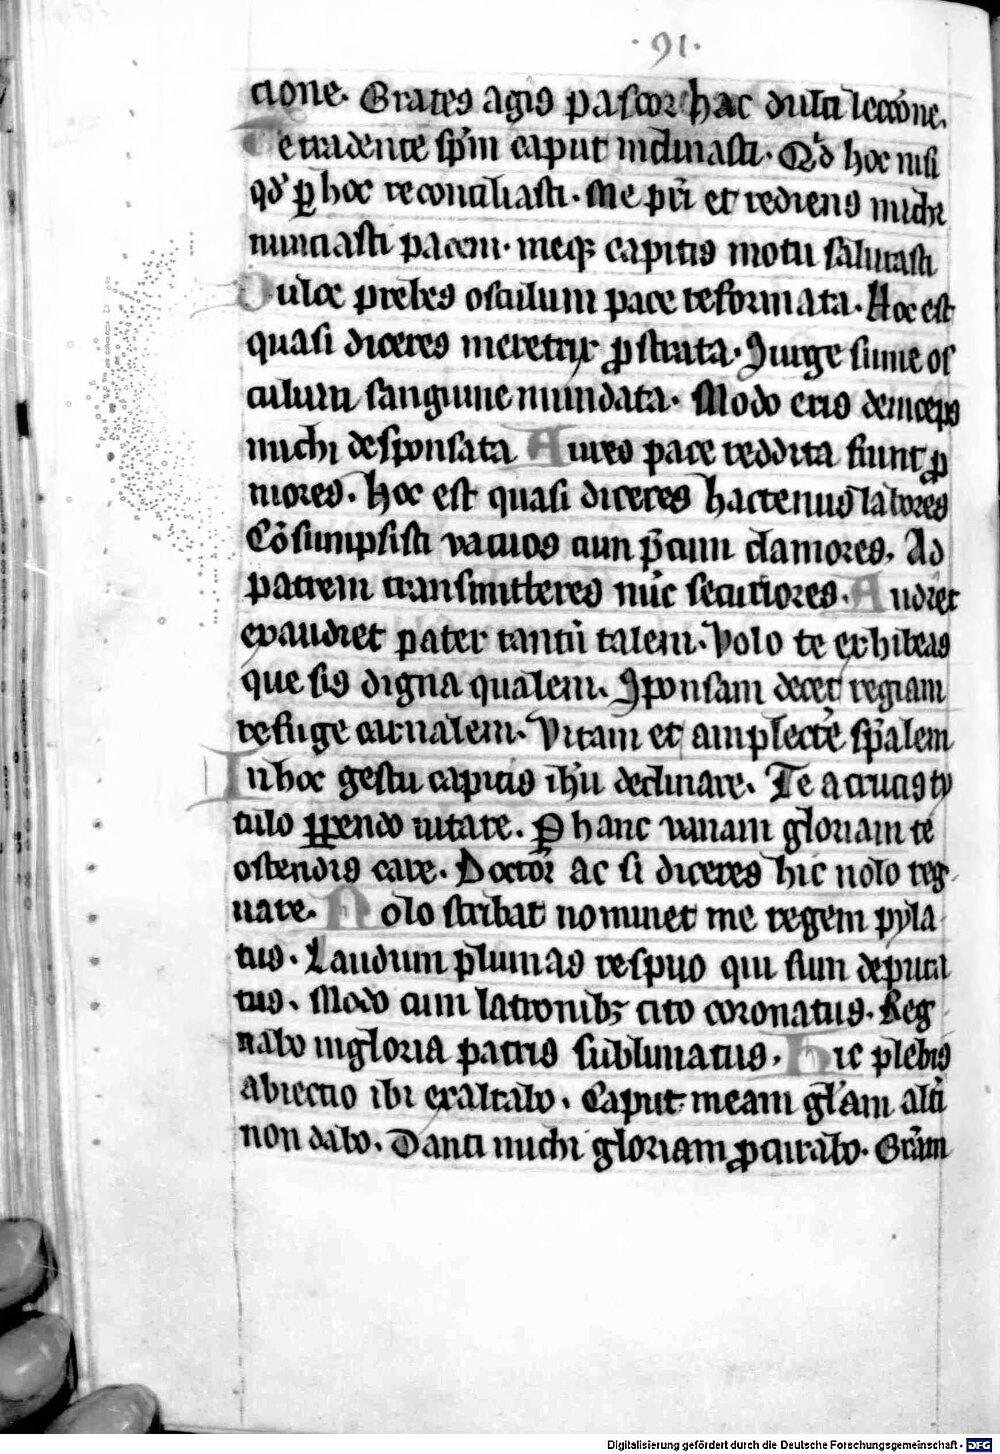 ·91·
cione. Grates agis pascor hac dulci leccōne.
Te tradente sp̄m caput inclinasti. Qd̓ hoc nisi
qd̓ ꝑ hoc reconciliasti. Me pr̄i et rediens michi
nunciasti pacem. meqꝫ capitis motu salutasti
Dulce prebes osculum pace reformata. Hoc est
quasi diceres meretrix ꝓstrata. Surge sume os
culum sanguine mundata. Modo eris deinceps
michi desponsata Aures pace reddita fiunt ꝓ
mores. Hoc est quasi diceres hactenus labores
Cōsumpsisti vacuos cum clamores. Ad
patrem transmitteres nūc securiores. Audiet
exaudiet pater tantū talem. Volo te exhibeas
que sis digna qualem. Sponsam decet regiam
refuge carnalem. Vitam et amplectē sp̄alem
In hoc gestu capitis ih̄u declinare. Te a crucis ty
tulo ꝑpendo uitare. Ꝑ hanc vanam gloriam te
ostendis care. Doctor ac si diceres hic nolo reg
nare. Nolo scribat nominet me regem pyla
tus. Laudum plumas respuo qui sum deputa
tus. Modo cum latronibꝫ cito coronatus. Reg
nabo in gloria patris sublimatus. Hic plebis
abiectio ibi exaltabo. Caput meam gl̄am alti
non dabo. Danti michi gloriam ꝓcurabo. Grām
Digitalisierung gefördert durch die Deutsche Forschungsgemeinschaft - DFG